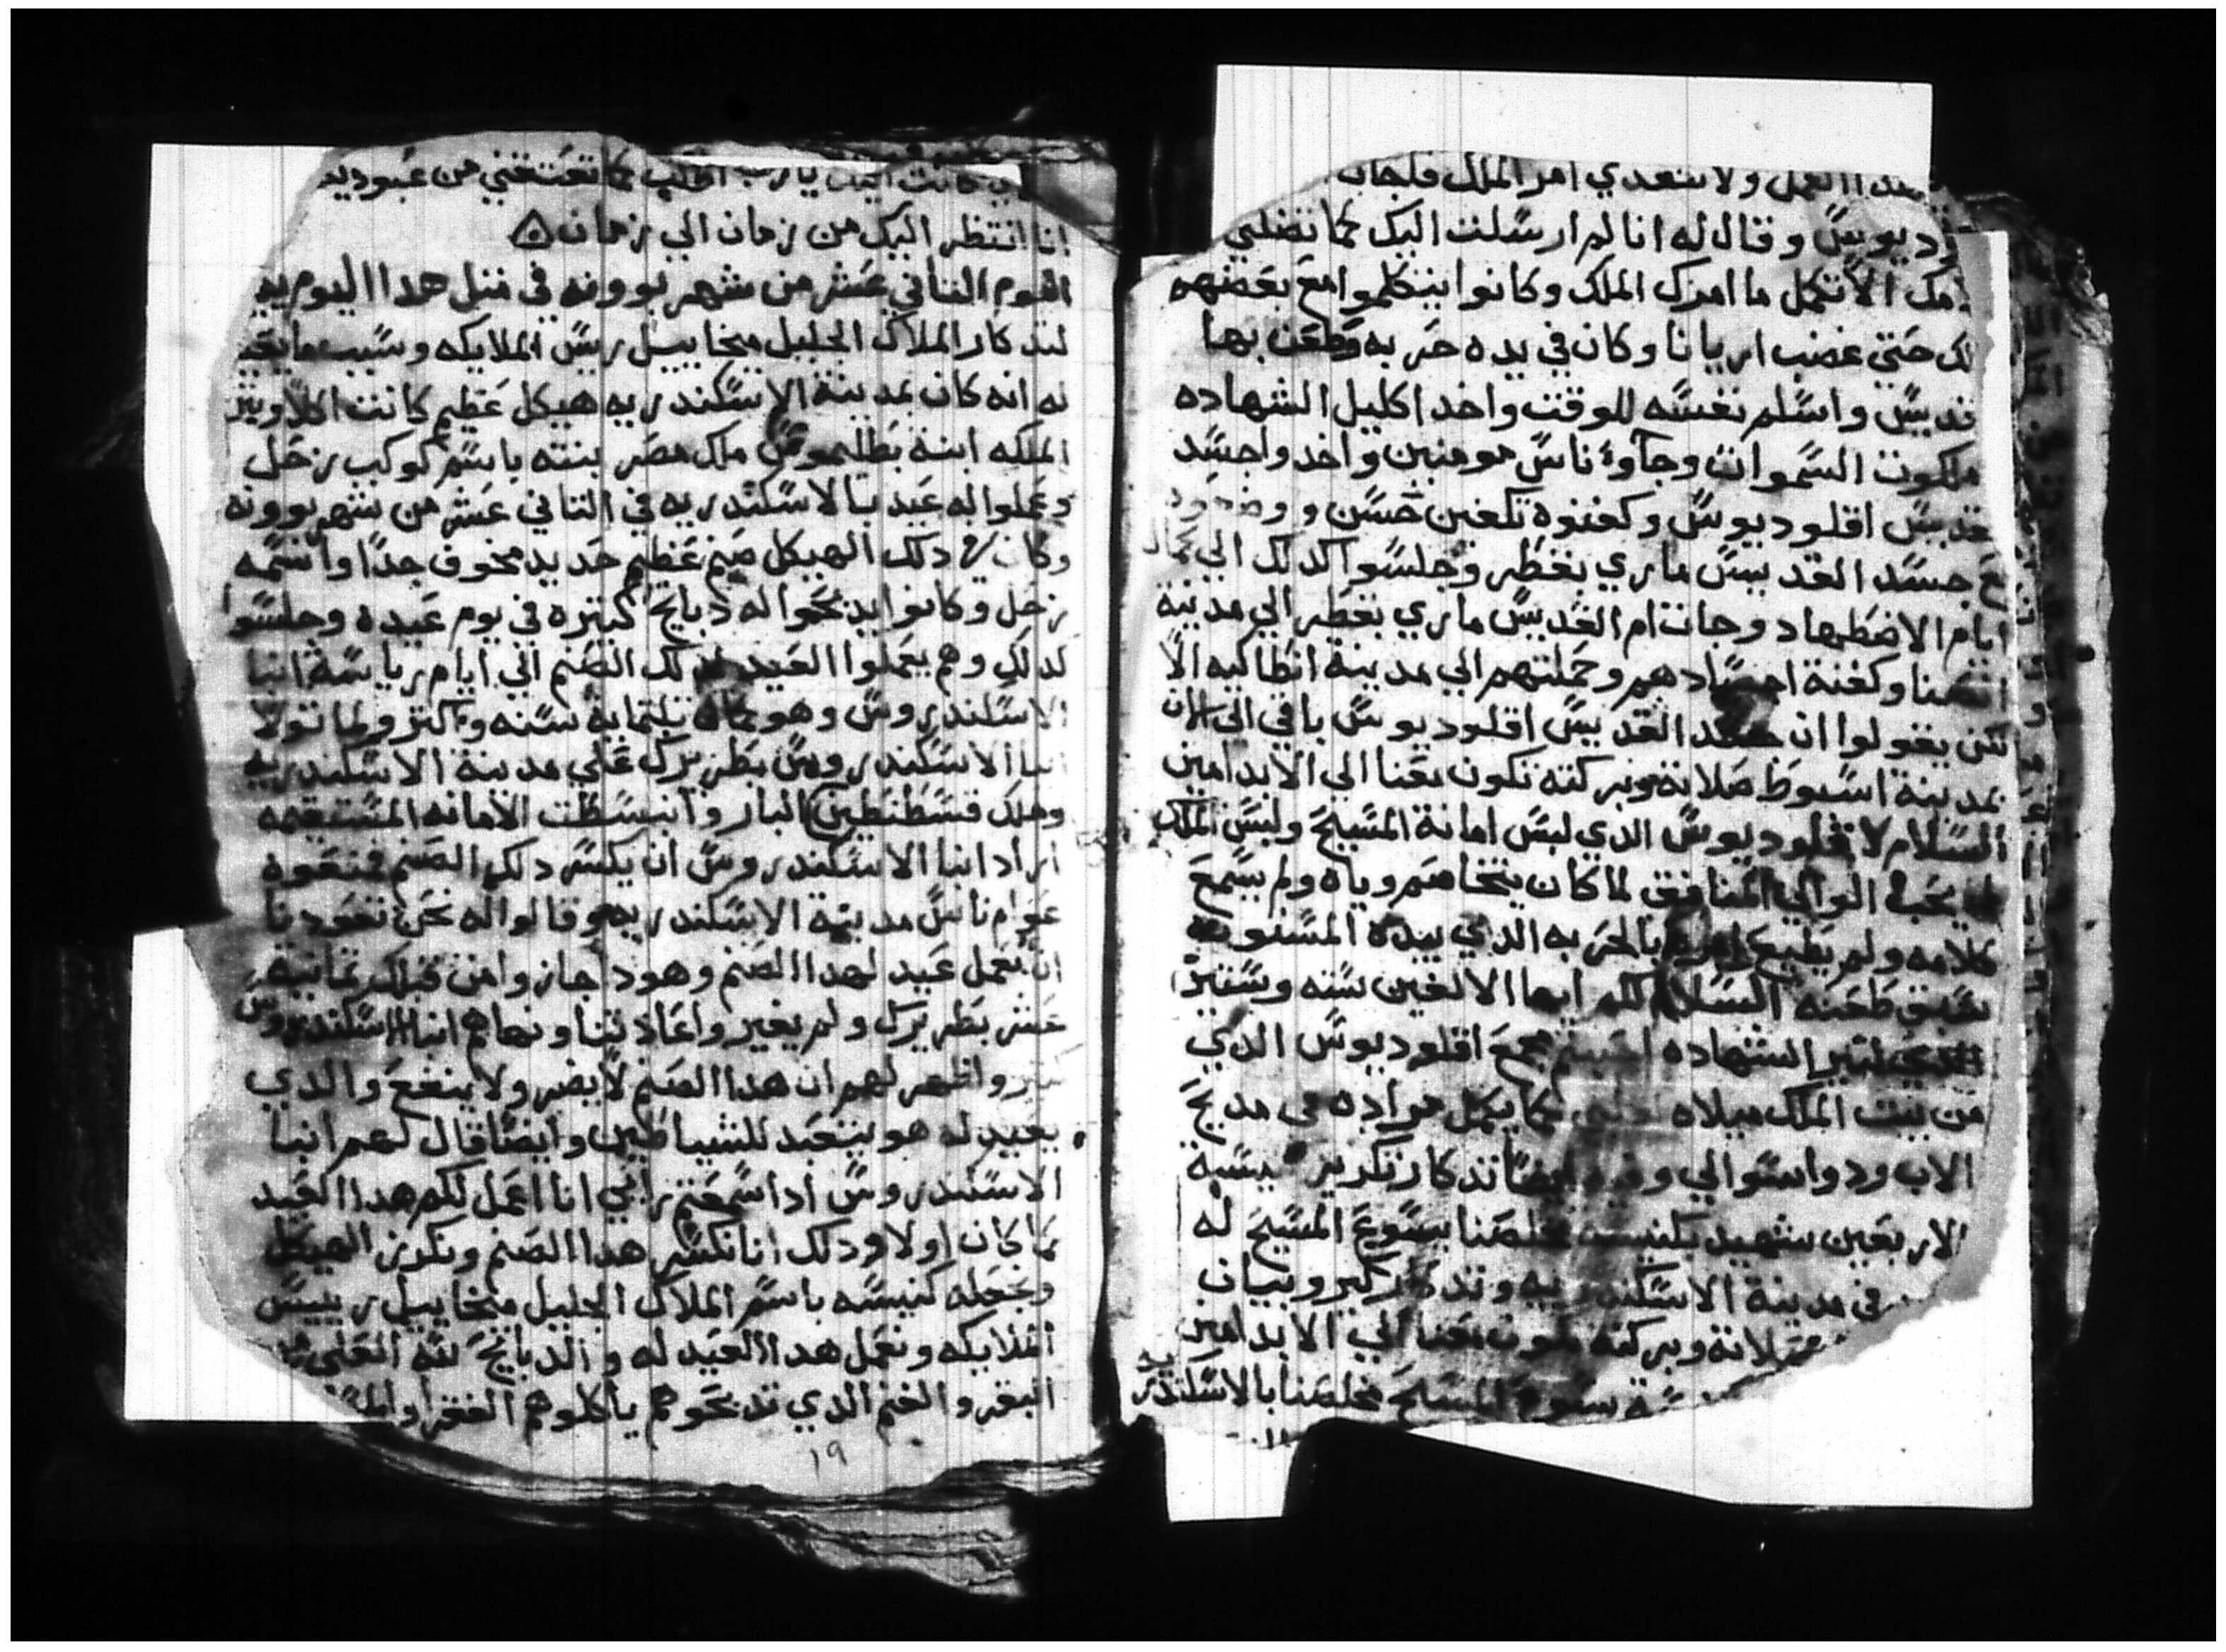 هدا العمل ولا تتعدي امر الملك فاجاب
وقال له انا لم ارسلت اليك كما تضلني
الا تكمل ما امرك الملك وكانوا يتكلموا مع بعضهم
حتي غضب اريانا وكان في يده حربه وطعن بها
واسلم نفسه للوقت واخد اكليل الشهاده
ملكوت السموات وجاوا ناس مومنين واخدوا جسد
اقلوديوس وكفنوه تكفين حسن
جسد القديس ماري بقطر وجلسوا كدلك الي
ايام الاضطهاد وجات ام القديس ماري بقطر الي مدينة
وكفنة اجسادهم وحملتهم الي مدينة انطاكيه الا
يقولوا ان جسد القديس اقلوديوس باقي الي الان
بمدينة اسيوط صلاته وبركته تكون معنا الي الابد امين
السلام لاقلوديوس الدي لبس امانة المسيح ولبس الملك
الوالي المنافق لما كان يتخاصم وياه ولم يسمع
كلامه ولم يطيع امره بالحربه الدي بيده المسنونه
طعنه السلام لكم ايها الالفين سته وستين
الشهاده مع اقلوديوس الدي
من بيت الملك ميلاه كما يكمل مراده في مديح
الاب ودواستوالي ايضا تدكار تكريز كنيسة
الاربعين شهيد بكنيست مخلصنا يسوع المسيح له
في مدينة الاسكندريه وتدكار كير وبيان
صلاته وبركته تكون معنا الي الابد امين
يسوع المسيح مخلصنا بالاسكندريه
كانت اليك يارب اطلب كما تعتقني من عبوديه
انا انتظر اليك من زمان الي زمان
اليوم التاني عشر من شهر بوونه في متل هدا اليوم
لتدكار الملاك الجليل ميخاييل ريس الملايكه وسبب ما يعيد
له انه كان بمدينة الاسكندريه هيكل عظيم كانت اكلاوبتر
الملكه ابنة بطليموس ملك مصر بنته باسم كوكب زحل
وعملوا له عيد بالاسكندريه في التاني عشر من شهر بوونه
وكان في دلك الهيكل صنم عظيم حديد مخوف جدا واسمه
زحل وكانوا يدبحوا له دبايح كتيره في يوم عيده وجلسوا
كدلك وهم يعملوا العيد لدلك الصنم الي ايام رياسة انبا
الاسكندروس وهو تلتمايه سنه واكتر ولما تولا
انبا الاسكندروس بطريرك علي مدينة الاسكندريه
وملك قسطنطين البار وانبسطت الامانه المستقيمه
اراد انبا الاسكندروس ان يكسر دلك الصنم فمنعوه
عوام ناس مدينة الاسكندريه وقالوا له نحن تعودنا
ان نعمل عيد لهدا الصنم وهودا جازوا من قبلك تمانيه
عشر بطريرك ولم يغير واعادتنا ونهاهم انبا الاسكندروس
واظهر لهم ان هدا الصنم لا يضر ولا ينفع والدي
يعيد له هو يتعبد للشياطين وايضا قال لهم انبا
الاسكندروس ادا سمعتم راي انا اعمل لكم هدا العيد
كما كان اولا ودلك انا نكسر هدا الصنم ونكرز الهيكل
ونجعله كنيسه باسم الملاك الجليل ميخاييل رييس
الملايكه ونعمل هدا العيد له والدبايح
البقر والغنم الدي تدبحوهم ياكلوهم الفقرا
١٩